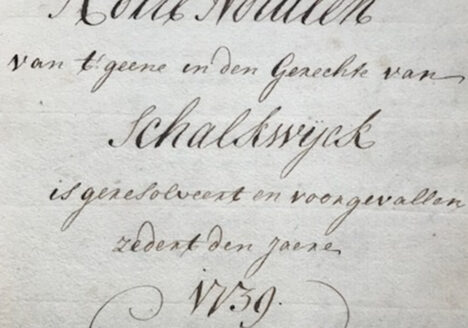 Korte Notulen
van t' geene in den Gerechte van
Schalkwyck
is geresolveert en voorgevallen
zedert den jaere
1739.